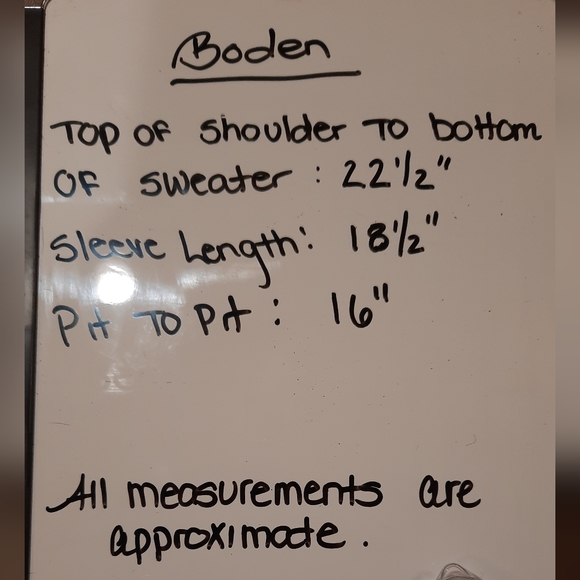 Boden
Top of shoulder to bottom
of sweater : 22 1/2"
Sleeve Length: 18 1/2"
Pit to Pit : 16"
All measurements are
approximate.